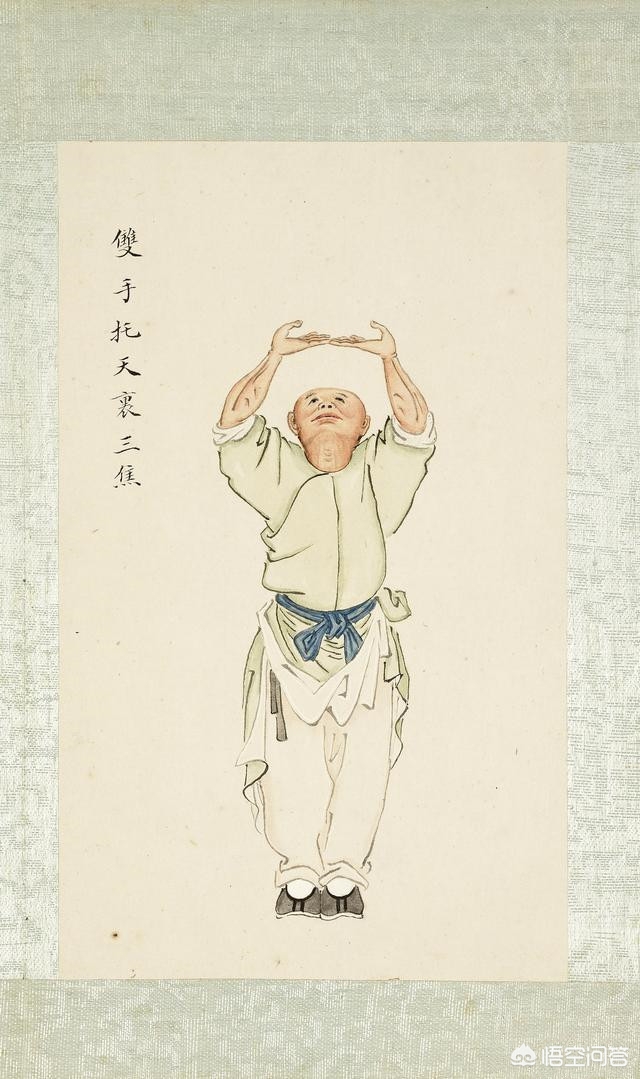 雙手托天裏三焦
悟空问答